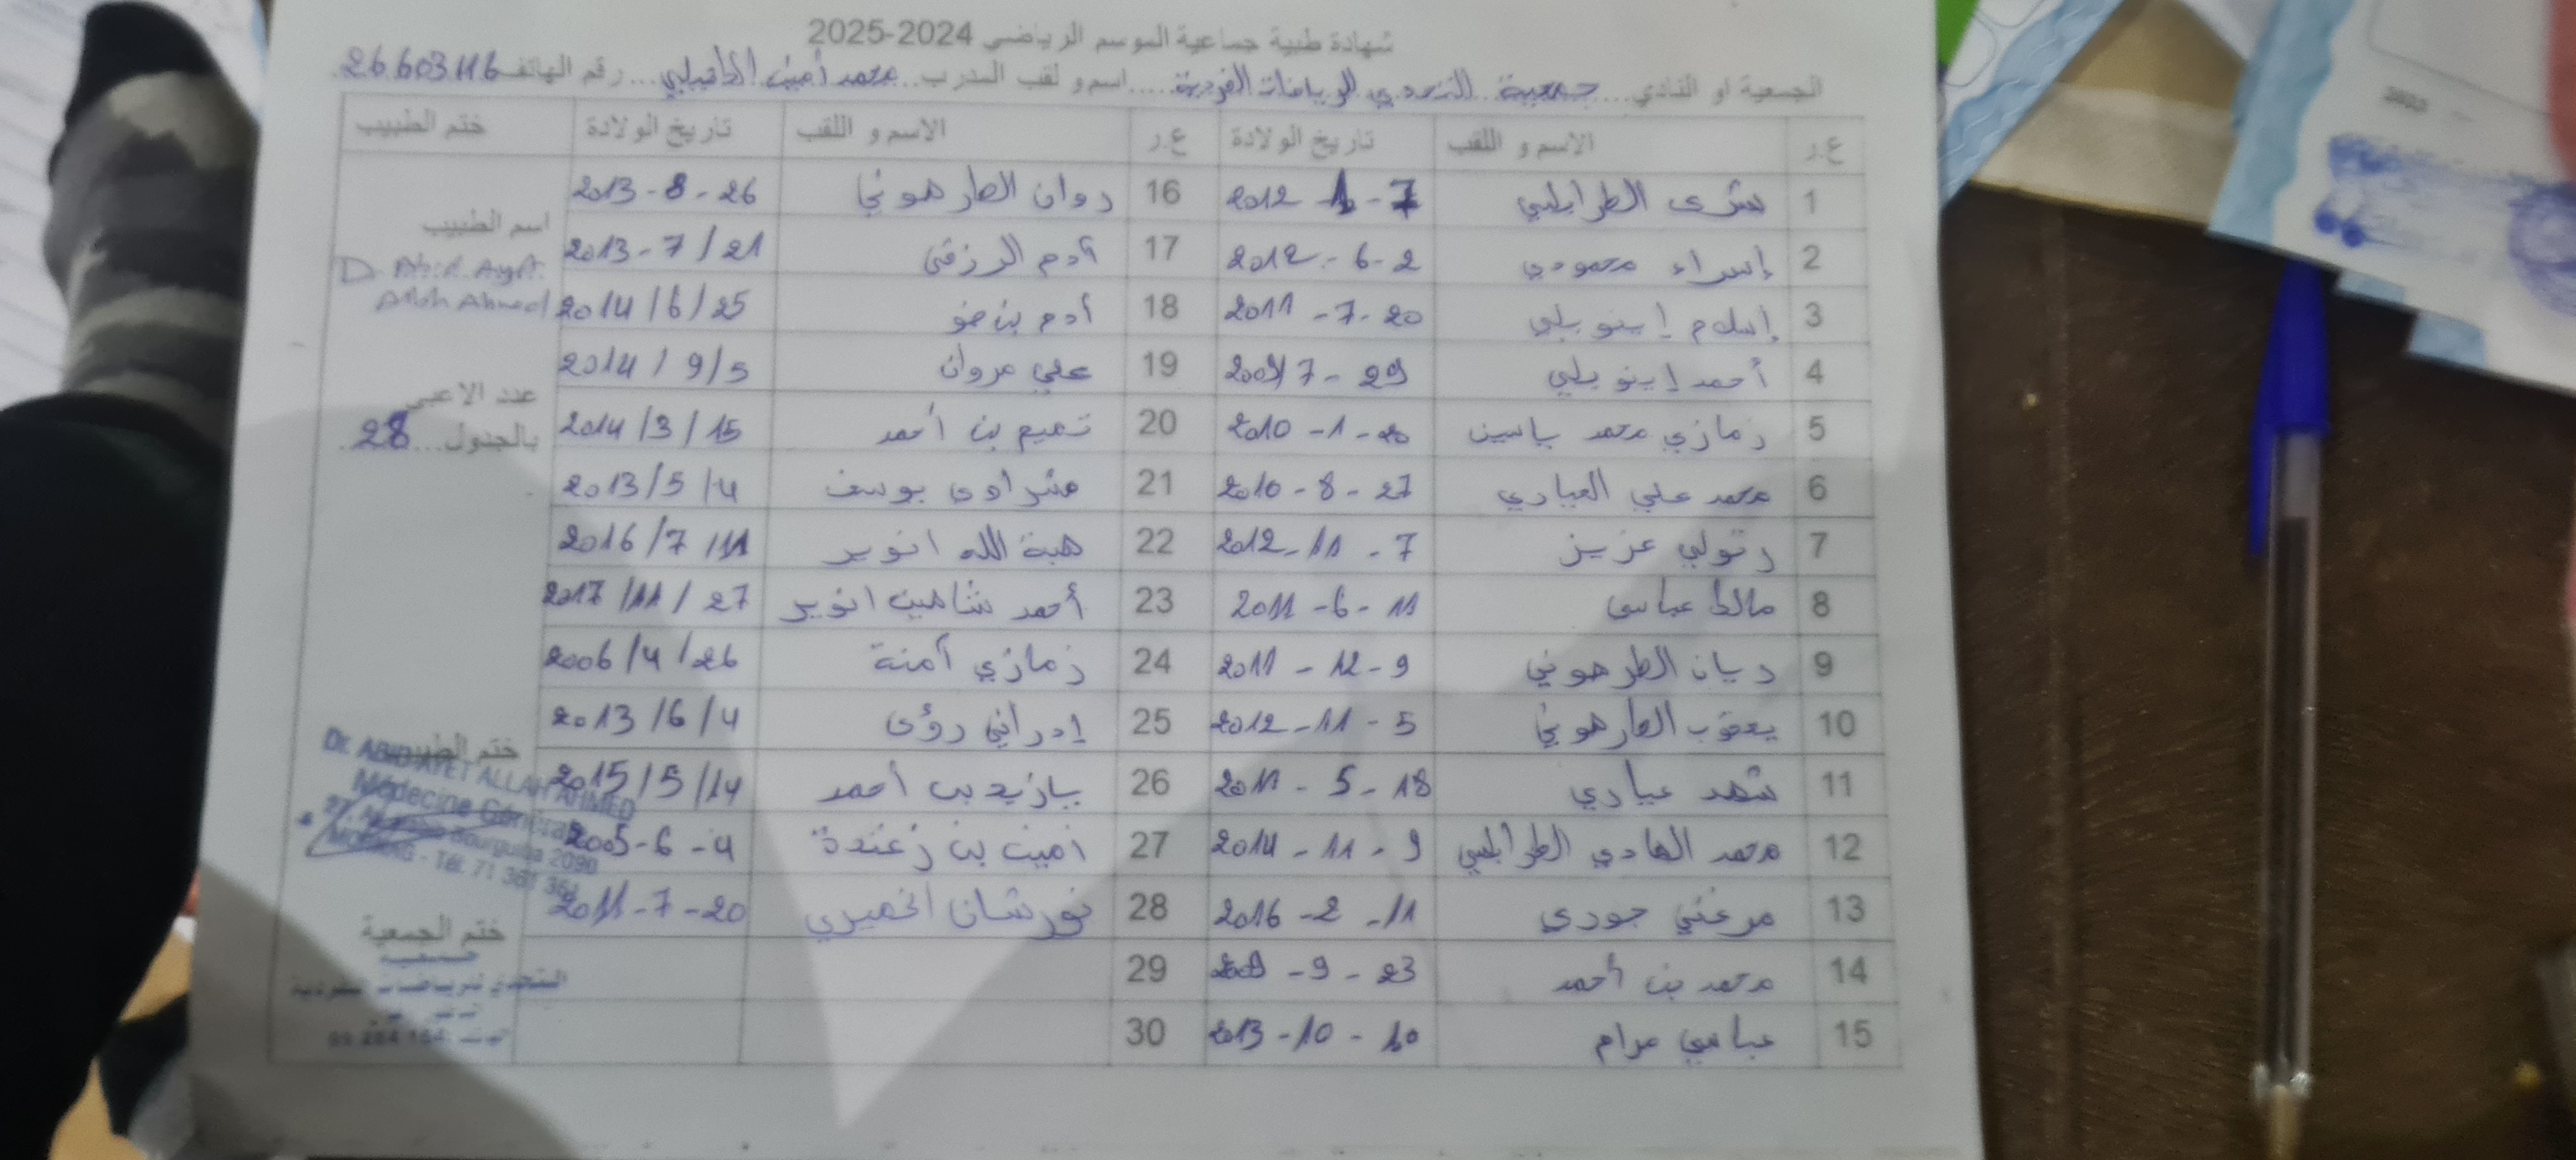 شهادة طبية جماعية الموسم الرياضي 2024-2025
الجمعية او النادي....جمعية التحدي للرياضات الفردية.....اسم و لقب المدرب..محمد أمين....رقم الهاتف 26603116
ع.ر الاسم و اللقب تاريخ الولادة ع.ر الاسم و اللقب تاريخ الولادة ختم الطبيب
1 بشرى الطرابلسي 7-1-2012 16 روان الطرهوني 26-8-2013
2 إسراء محمودي 2-6-2012 17 آدم الرزقي 21/7-2013
3 إسلام إينوبلي 20-7-2011 18 آدم بن ضو 25/6/2014
4 أحمد إينوبلي 29-7/2009 19 علي مروان 5/9/2014
5 زمازي محمد ياسين 20-1-2010 20 تميم بن أحمد 15/3/2014
6 محمد علي العيادي 27-8-2010 21 يوسف 4/5/2013
7 رتولي عزيز 7-11-2012 22 هبة الله انوير 11/7/2016
8 مالك عباسي 11-6-2011 23 أحمد شاهين انوير 27/11/2017
9 ديان الطرهوني 9-12-2011 24 زمازي آمنة 26/4/2006
10 يعقوب الطرهوني 5-11-2012 25 إدراني رؤى 4/6/2013
11 شهد عيادي 18-5-2011 26 يازيد بن أحمد 14/5/2015
12 محمد الهادي الطرابلسي 9-11-2014 27 امين بن زغندة 4-6-2005
13 مرغني جودي 11-2-2016 28 نورشان الخميري 20-7-2011
14 محمد بن أحمد 23-9-2009 29
15 عباسي مرام 10-10-2013 30
اسم الطبيب
D Abid Ayet
Allah Ahmed
عدد الاعبي
بالجدول...28
ختم الطبيب
Dr. ABID AYET ALLAH AHMED
Médecine Générale
Bourguiba 2090
MORNAG - Tél. 71 361 361
ختم الجمعية
جمعية
التحدي للرياضات الفردية